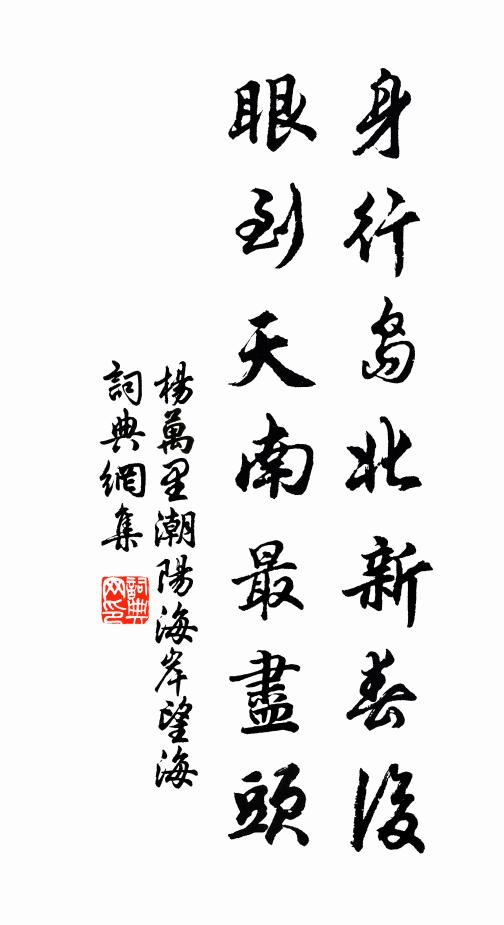 身行岛北新春後
眼到天南最盡頭
楊萬里潮陽海岸望海
詞典網集
詞典網印